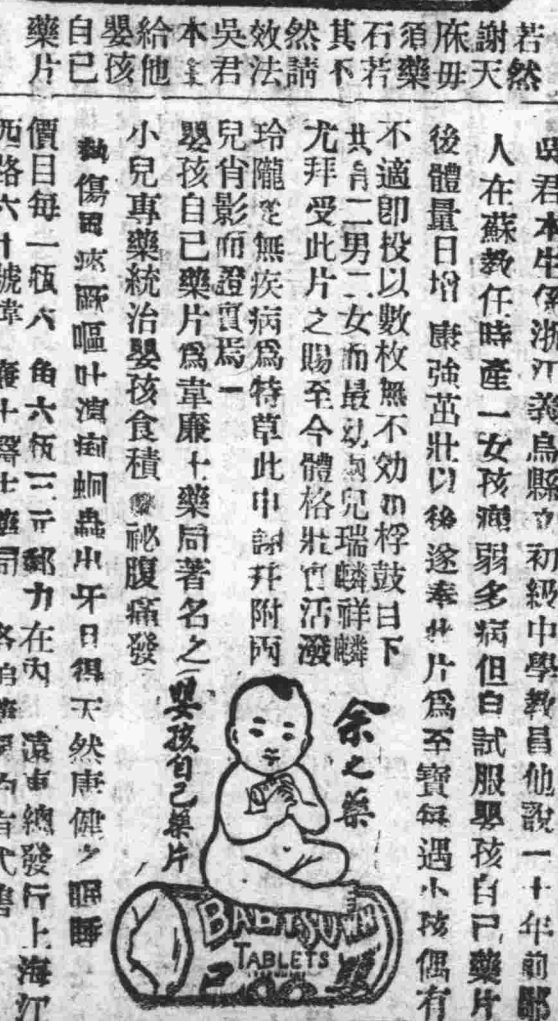 若然
謝天
庥毋
須藥
石若
其不
然請
效法
吳君
本
給他
嬰孩
自己
藥片
吳君本生係浙江義烏縣立初級中學教員他說一十年前鄙
人在蘇教任時產一女孩弱多病但自試服嬰孩自己藥片
後體量日增康強茁壯以後遂奉此片爲至寶每遇小孩偶有
不適卽投以數枚無不効如桴鼓目下
共育二男二女而最幼兩兒瑞麟祥麟
尤拜受此片之賜至今體格壯實活潑
玲瓏從無疾病爲特草此申謝幷附兩
兒肖影而證實焉一
嬰孩自己藥片爲韋廉士藥局著名之
小兒專藥統治嬰孩食積祕腹痛發
熱傷風痰厥嘔吐瀉痢蛔蟲出牙日得天然康健之睡
價目每一瓶六角六瓶三元郵力在內 遠東總發行上海江
西路六十號韋廉士醫士藥局 各均有代售
余之藥
嬰孩自己藥片
TABLETS